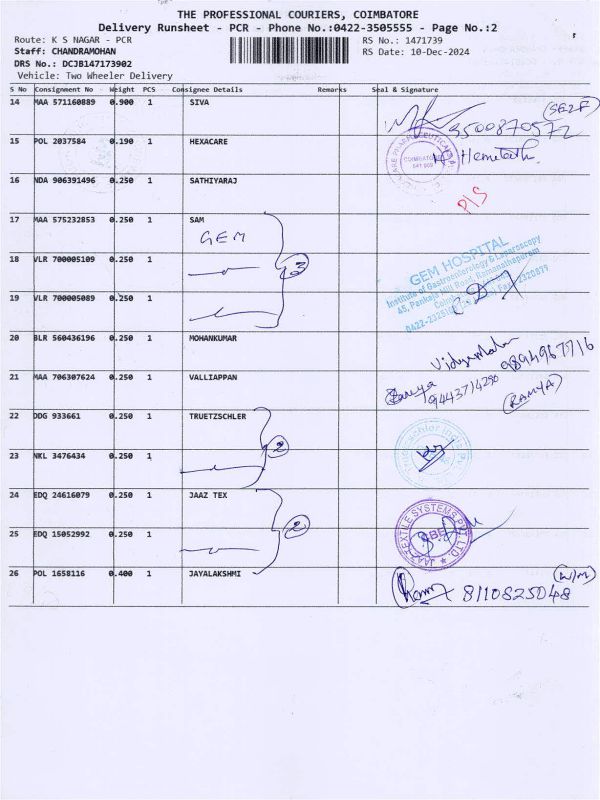 THE PROFESSIONAL COURIERS, COIMBATORE
Delivery Runsheet - PCR - Phone No.:0422-3505555 - Page No.:2
Route: K S NAGAR - PCR
RS No.: 1471739
Staff: CHANDRAMOHAN
RS Date: 10-Dec-2024
DRS No.: DCJB147173902
Vehicle: Two Wheeler Delivery
S No Consignment No Weight PCS Consignee Details Remarks Seal & Signature
14 MAA 571160889 0.900 1 SIVA
(SELF)
9500870572
15 POL 2037584 0.190 1 HEXACARE
COIMBATORE
16 NDA 906391496 0.250 1 SATHIYARAJ
P/S
17 MAA 575232853 0.250 1 SAM
GEM
18 VLR 700005109 0.250 1
3
GEM HOSPITAL
Institute of Gastroenterology & Laparoscopy
45, Pankaja Mill Road, Ramanathapuram
19 VLR 700005089 0.250 1
20 BLR 560436196 0.250 1 MOHANKUMAR
21 MAA 706307624 0.250 1 VALLIAPPAN
Ramya
(RAMYA)
22 DDG 933661 0.250 1 TRUETZSCHLER
2
23 NKL 3476434 0.250 1
24 EDQ 24616079 0.250 1 JAAZ TEX
2
JAAZ TEXTILE SYSTEMS PVT. LTD.
25 EDQ 15052992 0.250 1
26 POL 1658116 0.400 1 JAYALAKSHMI
(W/M)
8110825048